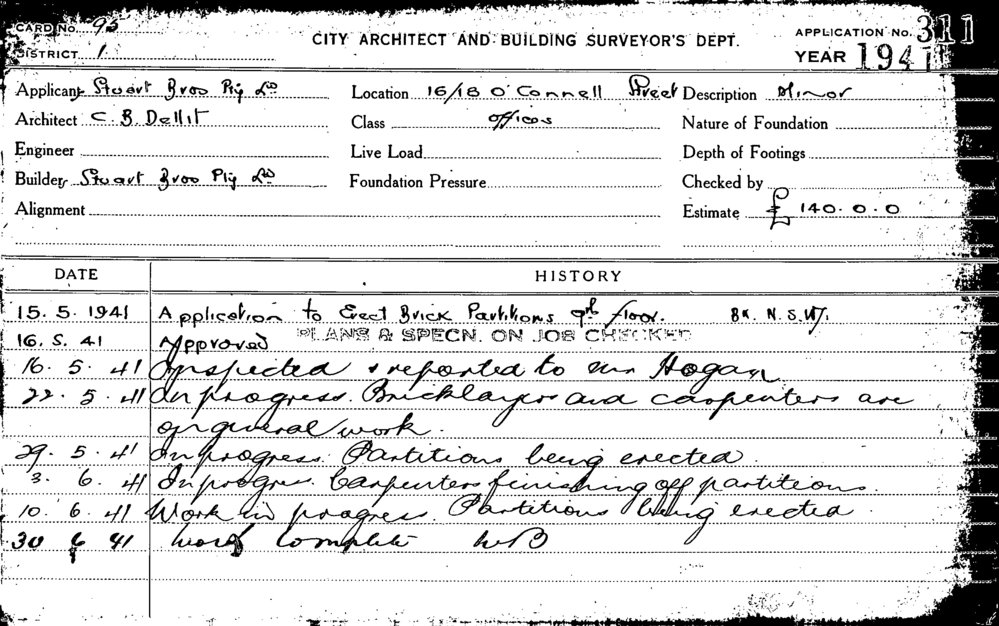 CARD No. 95
DISTRICT 1
CITY ARCHITECT AND BUILDING SURVEYOR'S DEPT.
APPLICATION No. 311
YEAR 1941
Applicant Stuart Bros Pty Ld
Location 16/18 O'Connell Street
Description Minor
Architect C B Dellit
Class Offices
Nature of Foundation
Engineer
Live Load
Depth of Footings
Builder Stuart Bros Pty Ld
Foundation Pressure
Checked by
Alignment
Estimate £ 140.0.0
DATE
HISTORY
15.5.1941 Application to Erect Brick Partitions 9th floor. Bk. N.S.W.
16.5.41 Approved PLANS & SPECN. ON JOB CHECKED
16.5.41 Inspected & reported to Mr Hogan
22.5.41 In progress. Bricklayers and carpenters are
on general work.
29.5.41 In progress. Partitions being erected.
3.6.41 In progr. Carpenters finishing off partitions.
10.6.41 Work in progress. Partitions being erected.
30 6 41 Work complete WB